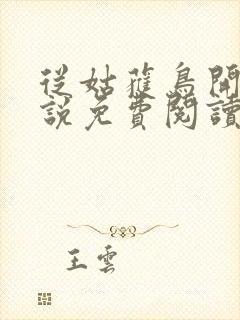 從姑蘿鳥開
說免費閱讀
王雲